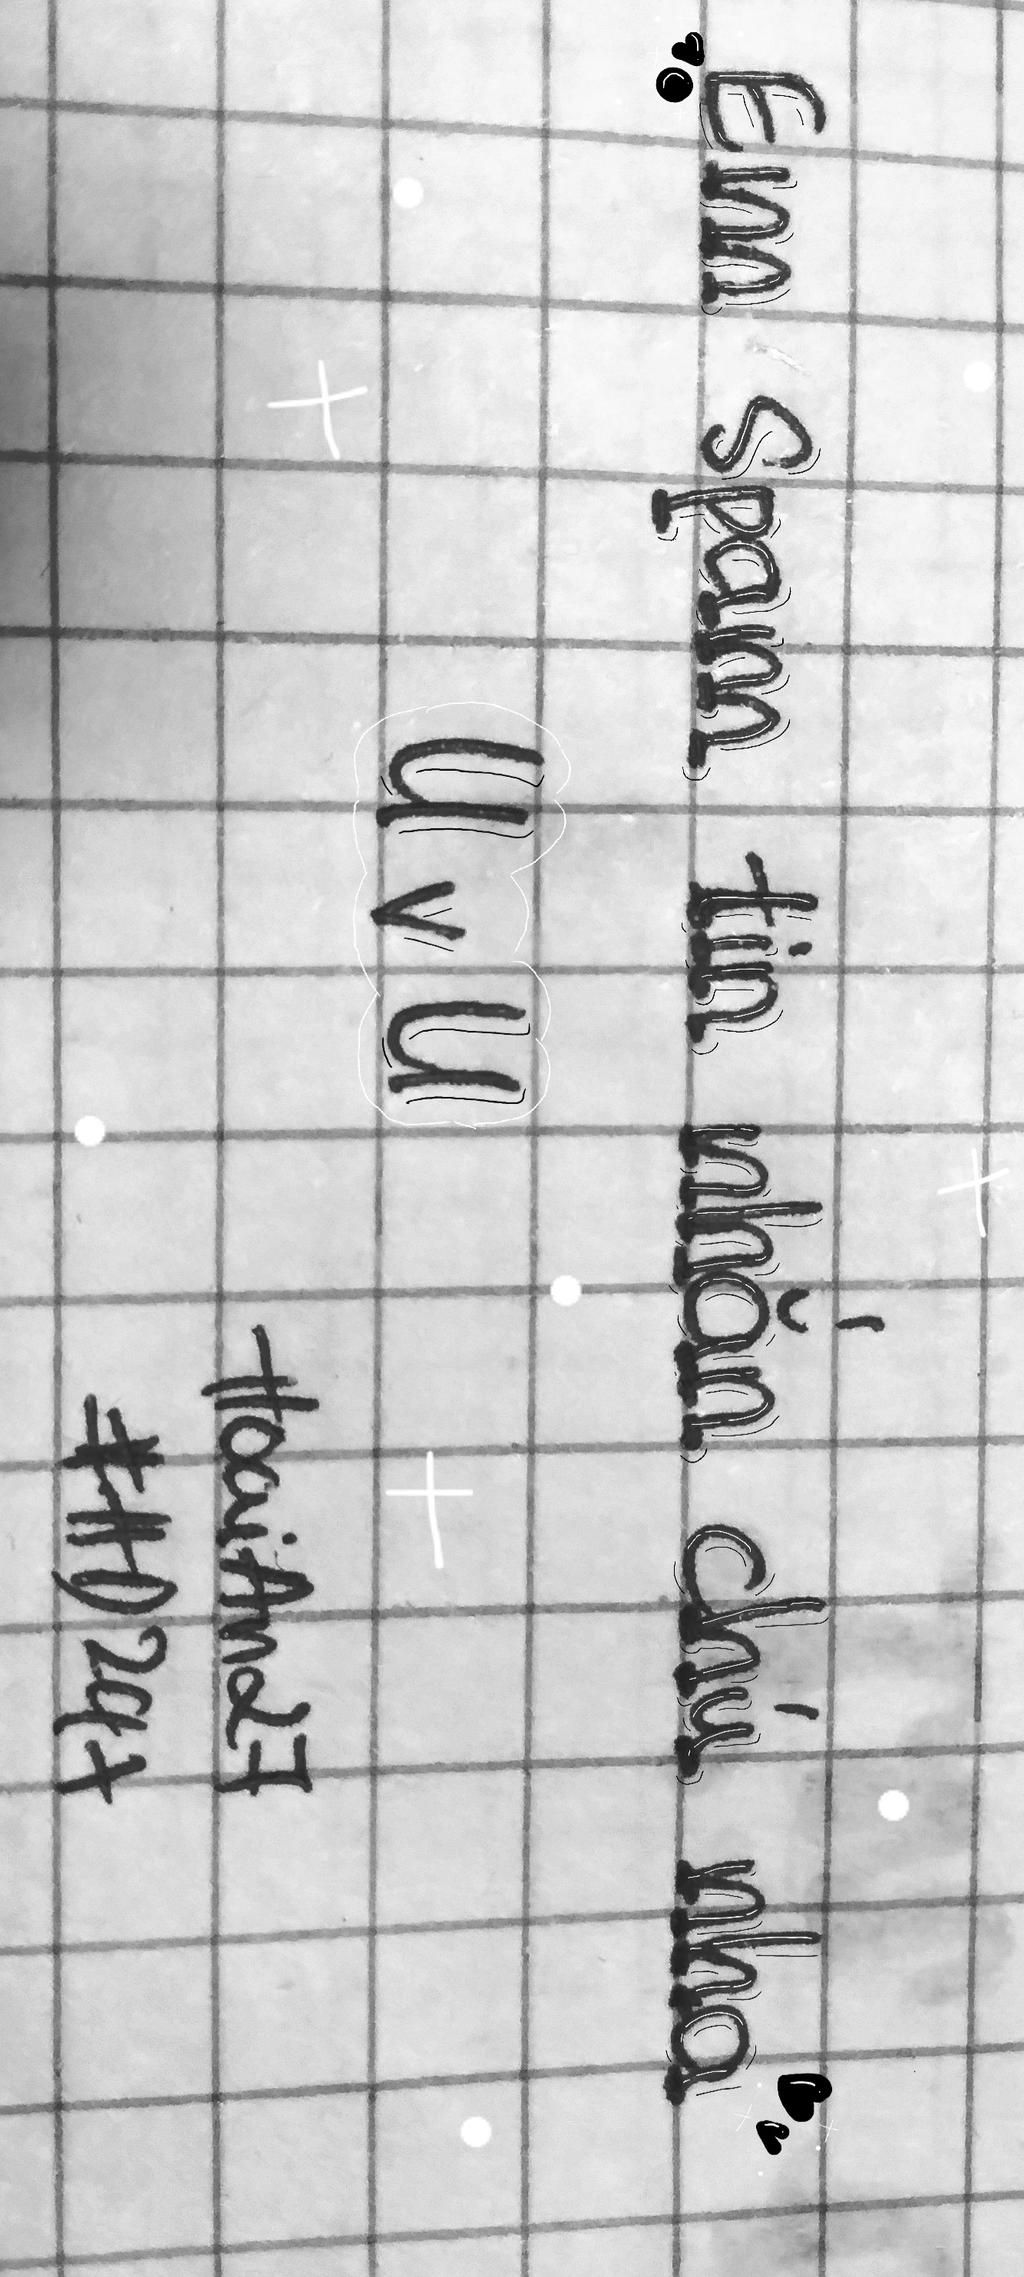 Em spam tin nhắn chú nha
UvU
HoaiAn27
#HD2917